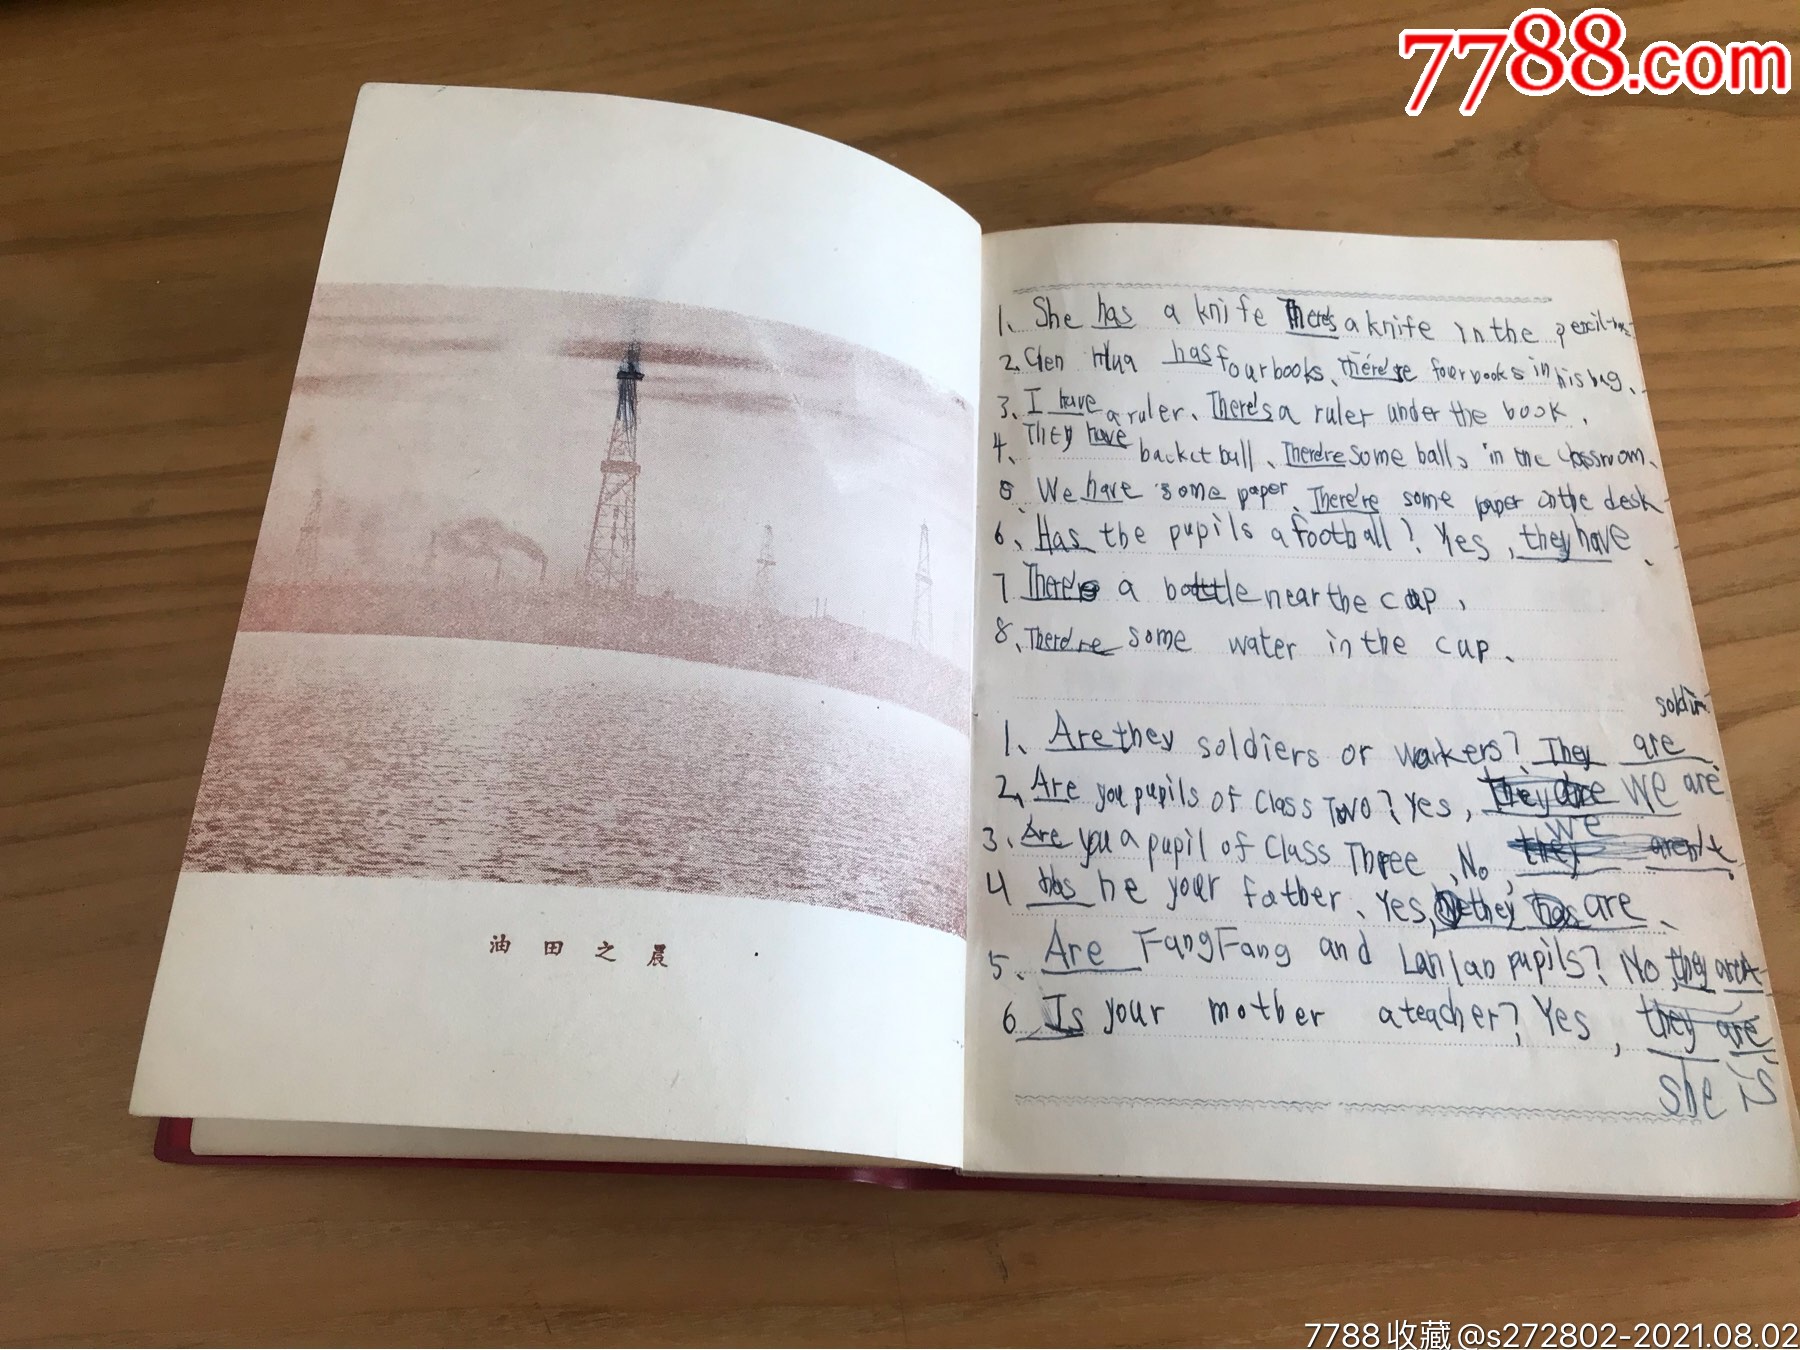 7788.com
油田之晨
1、She has a knife There's a knife in the pencil-
2、 Hua has four books、There're four books in his bag、
3、I have a ruler、There's a ruler under the book、
4、They have backetball、There're some balls in the classroom、
5、We have some paper、There're some paper in the desk
6、Has the pupils a football? Yes, they have、
7 There's a bottle near the cup、
8、There're some water in the cup、
soldier
1、Are they soldiers or workers? They are
2、Are you pupils of Class Two? Yes, they are we are
we
3、Are you a pupil of Class Three、No, they aren't
4 Has he your father、Yes, they has are、
5、Are FangFang and Lanlan pupils? No, they aren't
6 Is your mother a teacher? Yes, they are
she is
7788收藏@s272802-2021.08.02